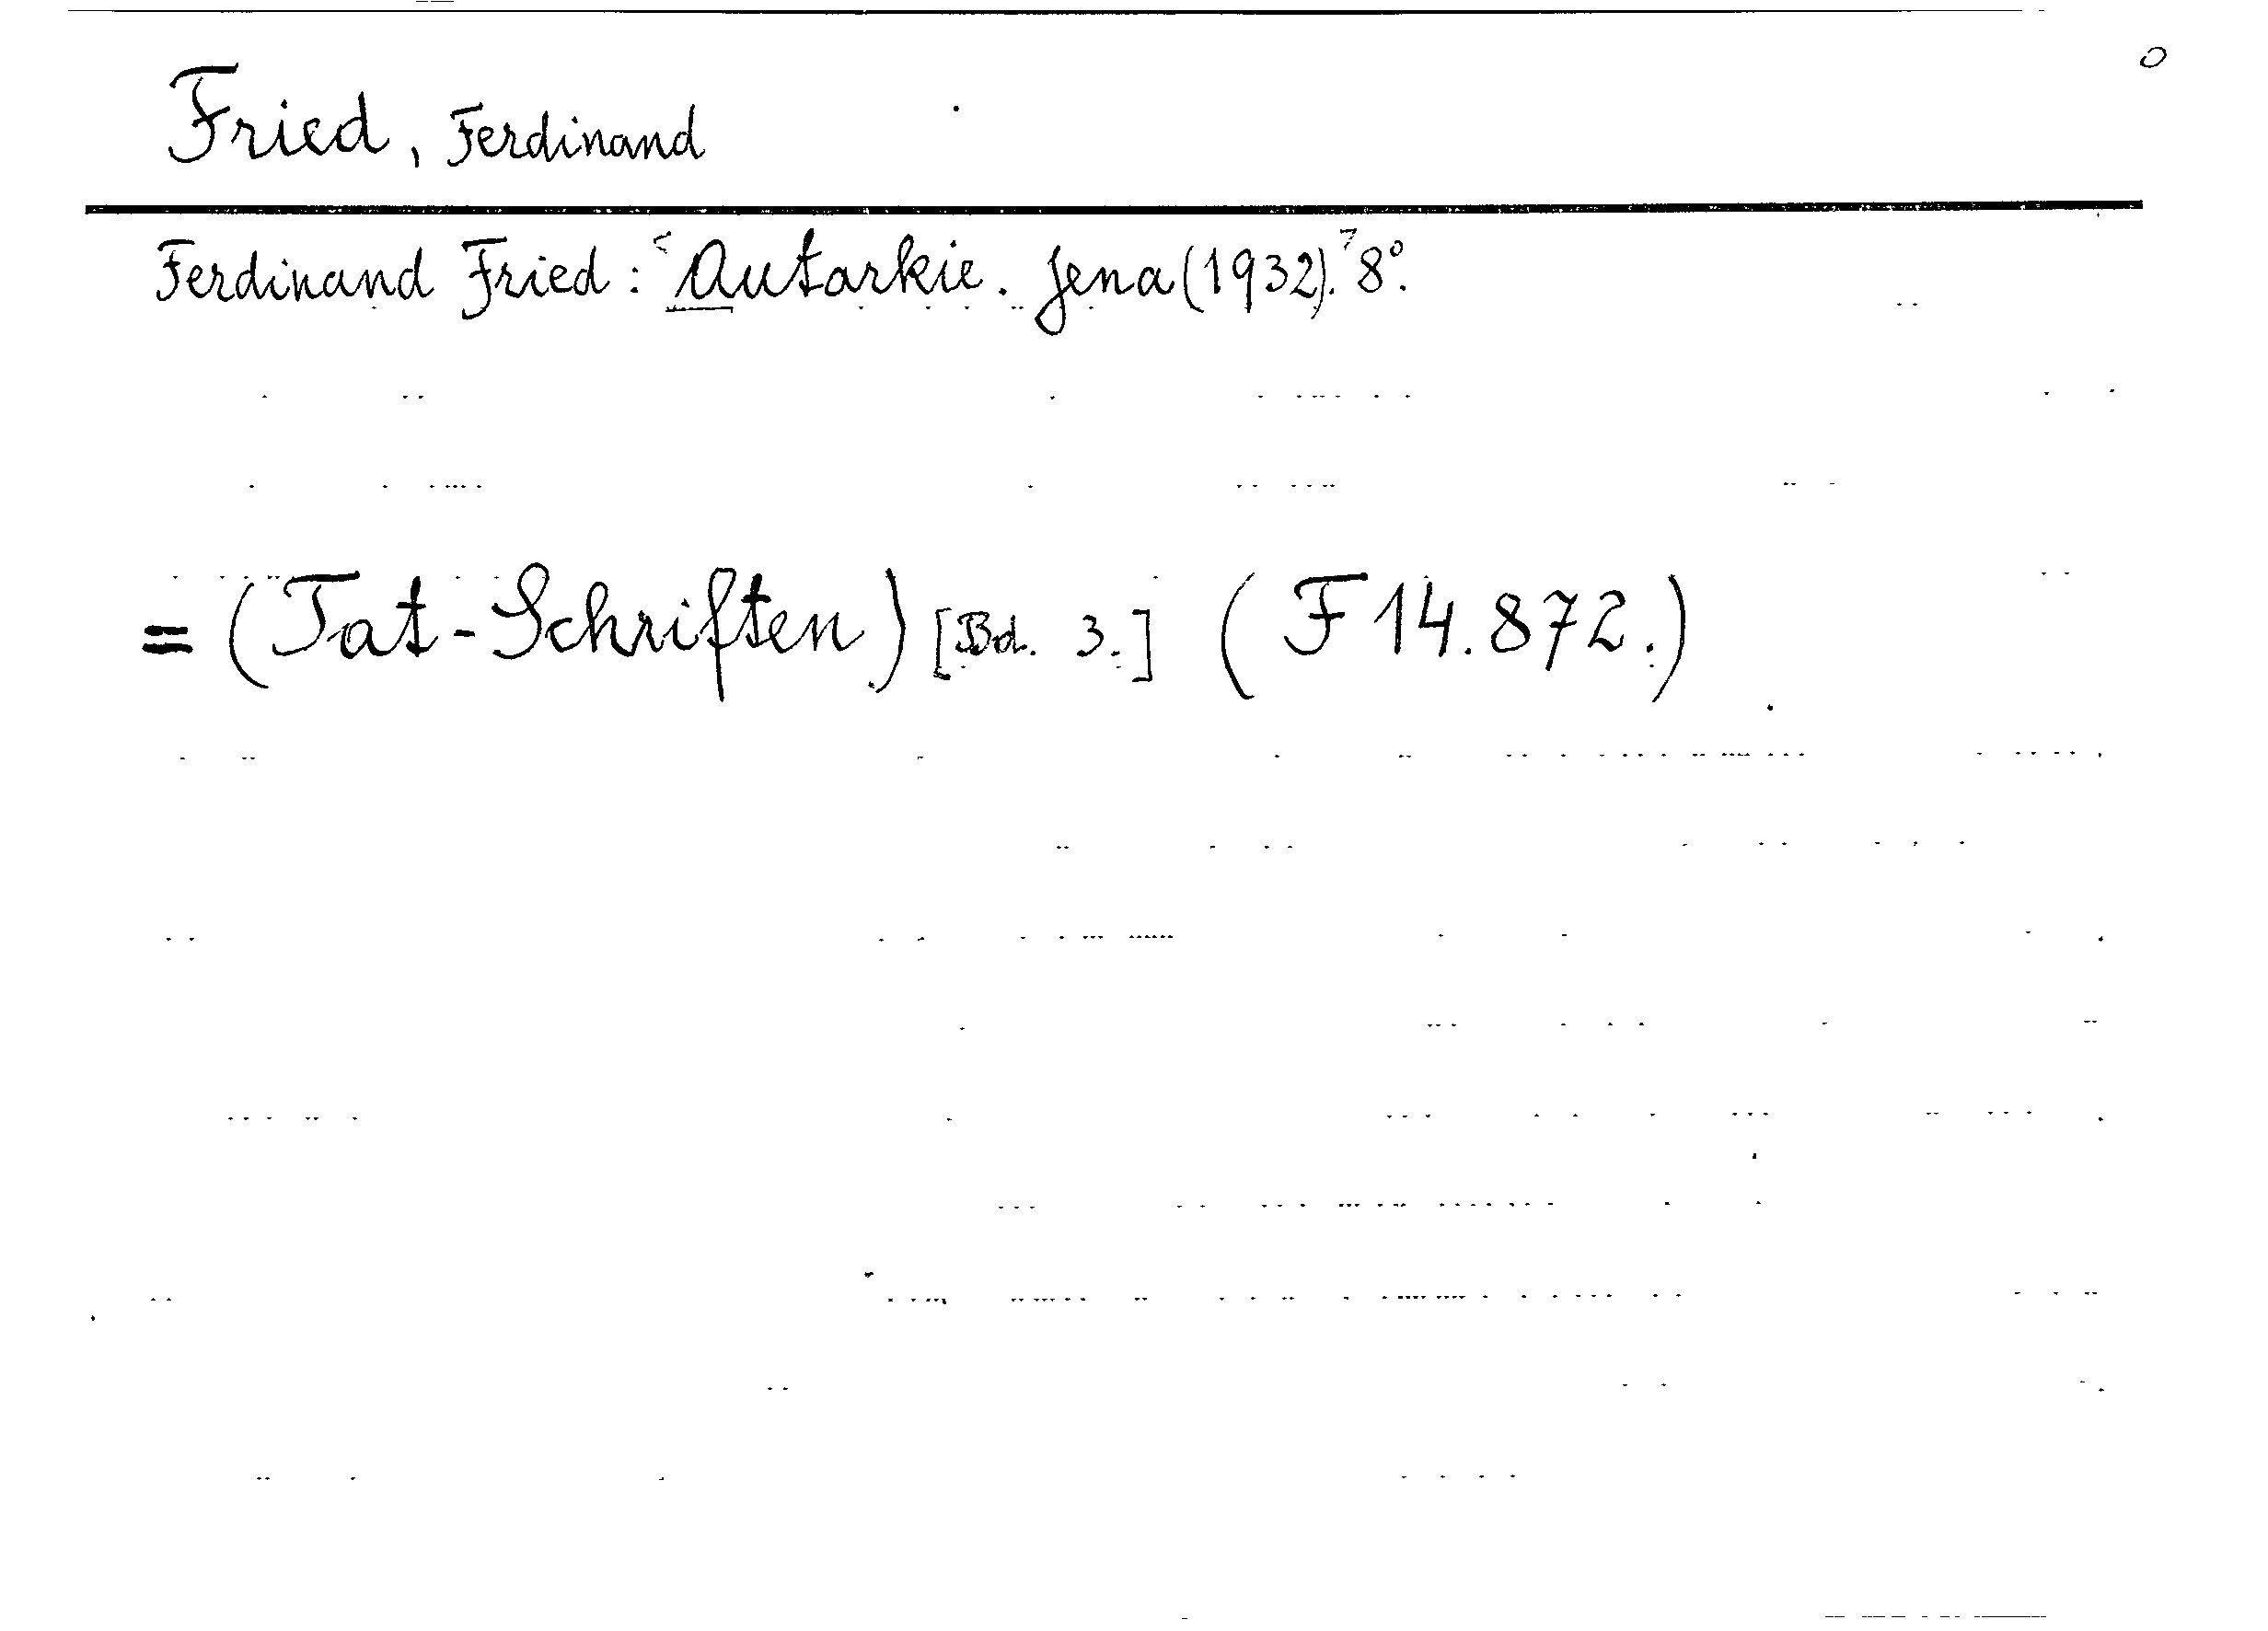 O
Fried, Ferdinand
Ferdinand Fried: <Autarkie. Jena (1932).> 8°.
= (Tat-Schriften) [Bd. 3.] (F 14.872.)